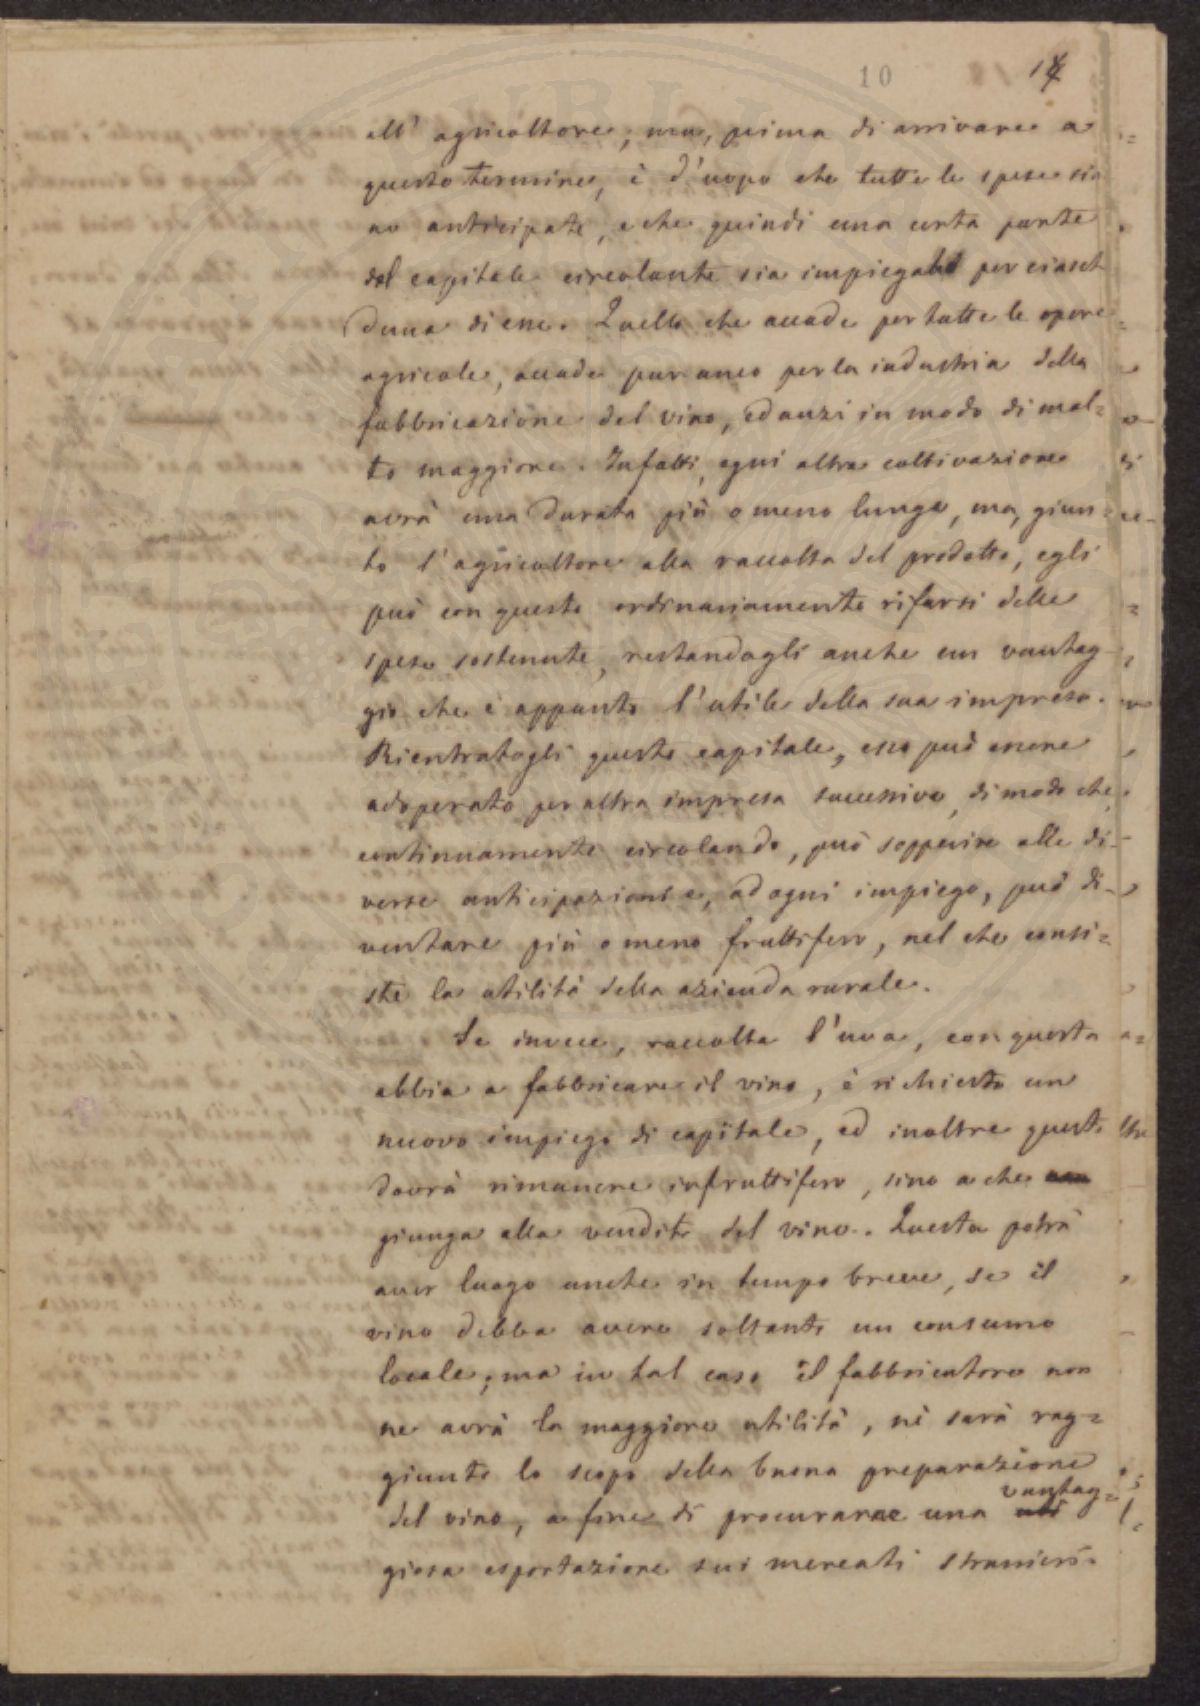 10
14
all' agricoltore; ma, prima di arrivare a
questo termine, è d'uopo che tutte le spese sia
no anticipate, e che quindi una certa parte
del capitale circolante sia impiegato per ciasch
duna di esse. Quello che accade per tutte le opere
agricole, accade pur anco per la industria della
fabbricazione del vino, ed anzi in modo di mol=
to maggiore. Infatti, ogni altra coltivazione
avrà una durata più o meno lunga, ma, giun=
to l'agricoltore alla raccolta del prodotto, egli
può con questo ordinariamente rifarsi delle
spese sostenute, restandogli anche un vantag-
gio che è appunto l'utile della sua impresa.
Rientratogli questo capitale, esso può essere
adoperato per altra impresa successiva, di modo che,
continuamente circolando, può sopperire alle di-
verse anticipazioni e, ad ogni impiego, può di-
ventare più o meno fruttifero, nel che consi=
ste la utilità della azienda rurale.
Se invece, raccolta l'uva, con questa
abbia a fabbricare il vino, è richiesto un
nuovo impiego di capitale, ed inoltre questo
dovrà rimanere infruttifero, sino a che
giunga alla vendita del vino. Questa potrà
aver luogo anche in tempo breve, se il
vino debba avere soltanto un consumo
locale; ma in tal caso il fabbricatore non
ne avrà la maggiore utilità, nè sarà rag=
giunto lo scopo della buona preparazione
del vino, a fine di procurarne una vantag=
giosa esportazione sui mercati stranieri.